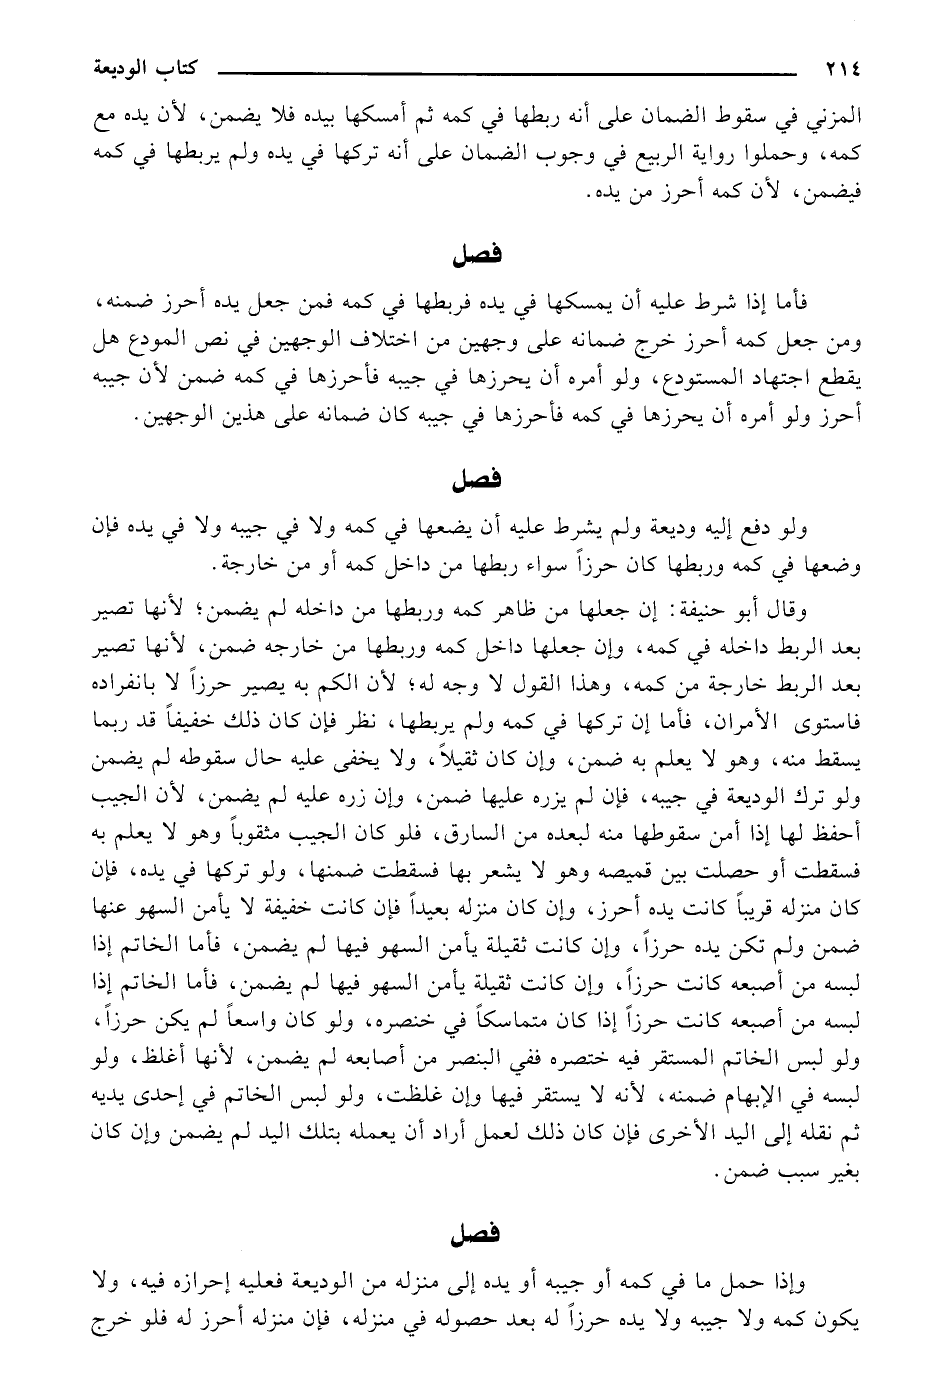 ٢١٤ كتاب الوديعة
المزني في سقوط الضمان على أنه ربطها في كمه ثم أمسكها بيده فلا يضمن، لأن يده مع
كمه، وحملوا رواية الربيع في وجوب الضمان على أنه تركها في يده ولم يربطها في كمه
فيضمن، لأن كمه أحرز من يده.
فصل
فأما إذا شرط عليه أن يمسكها في يده فربطها في كمه فمن جعل يده أحرز ضمنه،
ومن جعل كمه أحرز خرج ضمانه على وجهين من اختلاف الوجهين في نص المودع هل
يقطع اجتهاد المستودع، ولو أمره أن يحرزها في جيبه فأحرزها في كمه ضمن لأن جيبه
أحرز ولو أمره أن يحرزها في كمه فأحرزها في جيبه كان ضمانه على هذين الوجهين.
فصل
ولو دفع إليه وديعة ولم يشرط عليه أن يضعها في كمه ولا في جيبه ولا في يده فإن
وضعها في كمه وربطها كان حرزاً سواء ربطها من داخل كمه أو من خارجة.
وقال أبو حنيفة: إن جعلها من ظاهر كمه وربطها من داخله لم يضمن؛ لأنها تصير
بعد الربط داخله في كمه، وإن جعلها داخل كمه وربطها من خارجه ضمن، لأنها تصير
بعد الربط خارجة من كمه، وهذا القول لا وجه له؛ لأن الكم به يصير حرزاً لا بانفراده
فاستوى الأمران، فأما إن تركها في كمه ولم يربطها، نظر فإن كان ذلك خفيفاً قد ربما
يسقط منه، وهو لا يعلم به ضمن، وإن كان ثقيلاً، ولا يخفى عليه حال سقوطه لم يضمن
ولو ترك الوديعة في جيبه، فإن لم يزره عليها ضمن، وإن زره عليه لم يضمن، لأن الجيب
أحفظ لها إذا أمن سقوطها منه لبعده من السارق، فلو كان الجيب مثقوباً وهو لا يعلم به
فسقطت أو حصلت بين قميصه وهو لا يشعر بها فسقطت ضمنها، ولو تركها في يده، فإن
كان منزله قريباً كانت يده أحرز، وإن كان منزله بعيداً فإن كانت خفيفة لا يأمن السهو عنها
ضمن ولم تكن يده حرزاً، وإن كانت ثقيلة يأمن السهو فيها لم يضمن، فأما الخاتم إذا
لبسه من أصبعه كانت حرزاً، وإن كانت ثقيلة يأمن السهو فيها لم يضمن، فأما الخاتم إذا
لبسه من أصبعه كانت حرزاً إذا كان متماسكاً في خنصره، ولو كان واسعاً لم يكن حرزاً،
ولو لبس الخاتم المستقر فيه ختصره ففي البنصر من أصابعه لم يضمن، لأنها أغلظ، ولو
لبسه في الإبهام ضمنه، لأنه لا يستقر فيها وإن غلظت، ولو لبس الخاتم في إحدى يديه
ثم نقله إلى اليد الأخرى فإن كان ذلك لعمل أراد أن يعمله بتلك اليد لم يضمن وإن كان
بغير سبب ضمن.
فصل
وإذا حمل ما في كمه أو جيبه أو يده إلى منزله من الوديعة فعليه إحرازه فيه، ولا
يكون كمه ولا جيبه ولا يده حرزاً له بعد حصوله في منزله، فإن منزله أحرز له فلو خرج